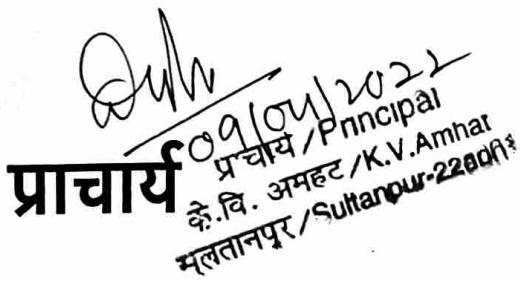 09/04/2022
प्राचार्य
प्राचार्य/Principal
के.वि. अमहट/K.V.Amhat
सुलतानपुर/Sultanpur-